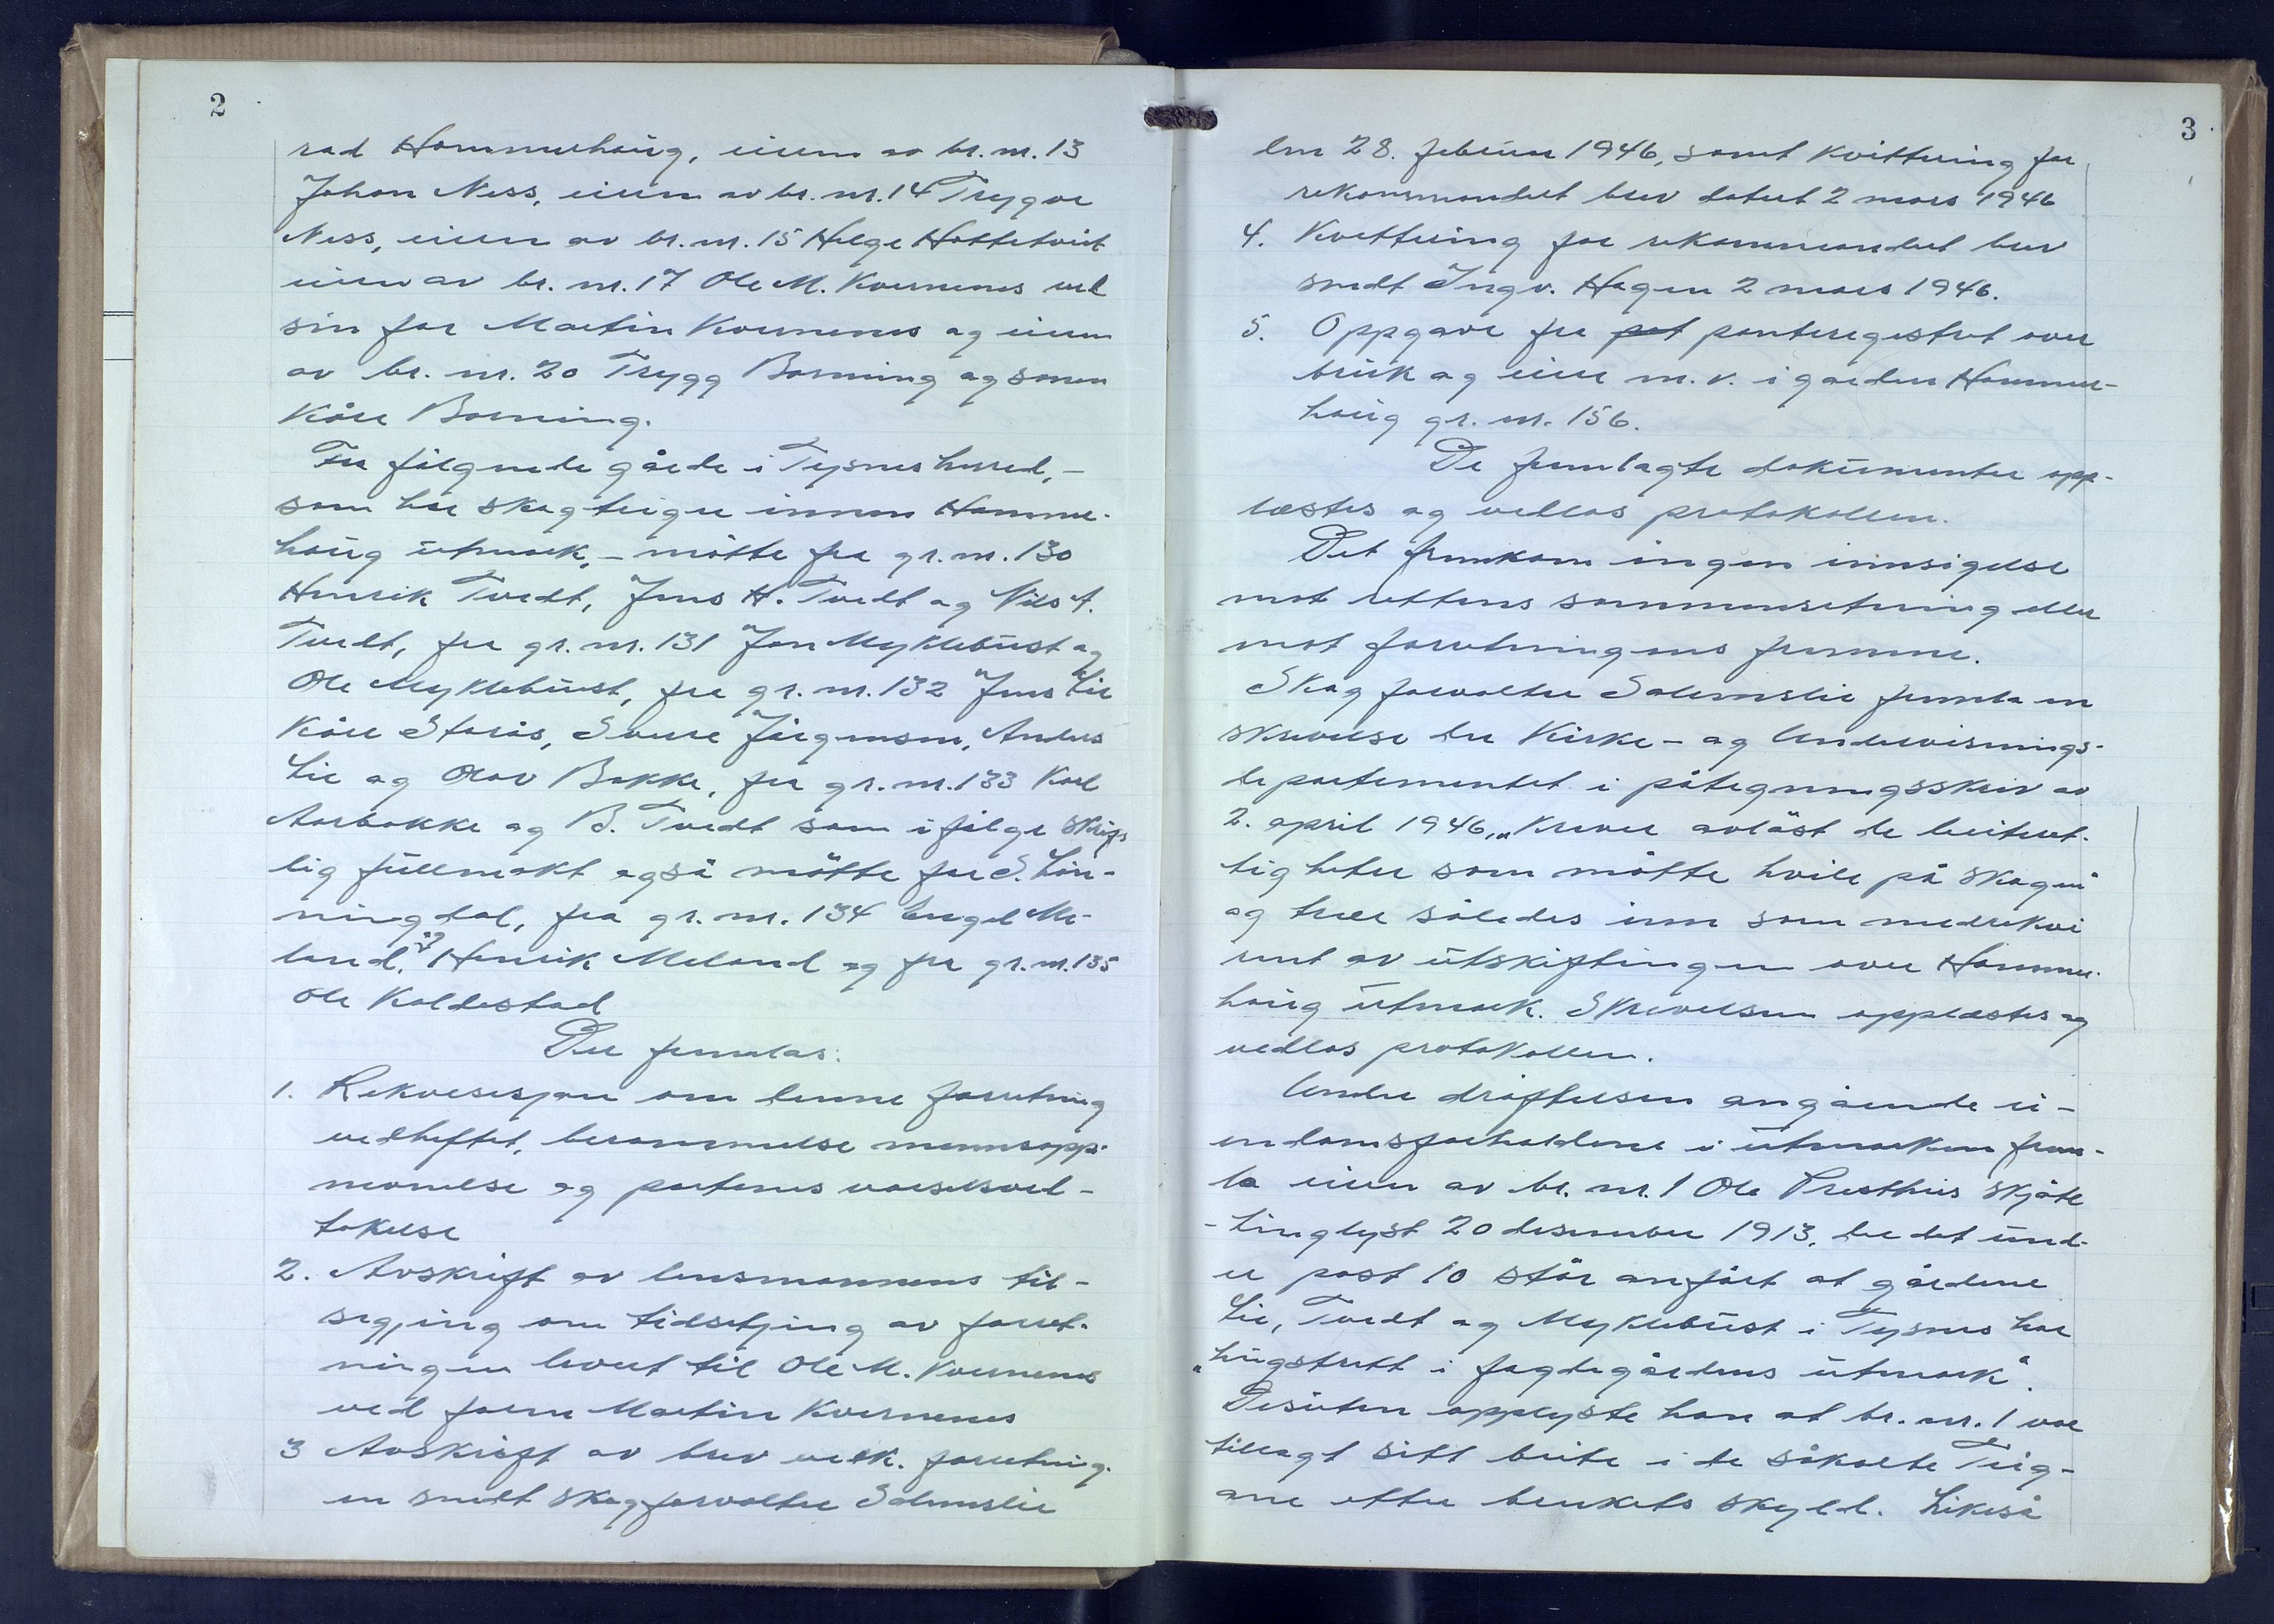 2
rad Hammerhaug, eieren av br. nr. 13
Johan Ness, eieren av br. nr. 14 Trygve
Ness, eieren av br. nr. 15 Helge Hattetveit
eieren av br. nr. 17 Ole M. Kvernenes ved
sin far Martin Kvernenes og eieren
av br. nr. 20 Trygg Borning og sonen
Kåre Borning.
Fra følgende gårde i Tysnes herred, –
som har skogteiger innen Hammer-
haug utmark, – møtte fra gr. nr. 130
Henrik Tvedt, Jens H. Tvedt og Nils A.
Tvedt, fra gr. nr. 131 Jon Myklebust og
Ole Myklebust, fra gr. nr. 132 Jens Lie
Kåre Storås, Sverre Jørgensen, Anders
Lie og Olav Bakke, fra gr. nr. 133 Karl
Aarbakke og B. Tvedt som ifølge skrift
lig fullmakt også møtte for S. Løn-
ningdal, fra gr. nr. 134 Engel Me-
land, og Henrik Meland og fra gr. nr. 135
Ole Kaldestad
Der fremlas:
1. Rekvisisjon om denne forretning
vedheftet, berammelse mennsopp-
nevnelse og partenes varselsved-
takelse
2. Avskrift av lensmannens til-
segjing om tidsetjing av forret-
ningen levert til Ole M. Kvernenes
ved faren Martin Kvernenes
3 Avskrift av brev vedk. forretning-
en sendt skogforvalter Solemslie
3
den 28. februar 1946, samt kvittering for
rekommandert brev datert 2 mars 1946
4. Kvittering for rekommandert brev
sendt Ingv. Hagen 2 mars 1946.
5. Oppgave fra pat panteregistret over
bruk og eier m. v. i garden Hammer-
haug gr. nr. 156.
De fremlagte dokumenter opp-
læstes og vedlas protokollen.
Det fremkom ingen innsigelse
mot rettens sammensetning eller
mot forretningens fremme.
Skogforvalter Solemslie fremla en
skrivelse der Kirke- og Undervisnings-
departementet i påtegningsskriv av
2. april 1946, „krever avløst de beiteret-
tigheter som måtte hvile på skogen
og trer således inn som medrekvi
rent av utskiftingen over Hammer-
haug utmark. Skrivelsen opplæstes og
vedlas protokollen.
Under drøftelsen angående ei-
endomsforholdene i utmarken frem-
la eieren av br. nr. 1 Ole Presthus skjøte
- tinglyst 20 desember 1913, der det und-
er post 10 står anført at gårdene
Lie, Tvedt og Myklebust i Tysnes har
„hugstrett i Fagdegårdens utmark“.
Desuten opplyste han at br. nr. 1 var
tillagt sitt beite i de såkalte Teig-
ane etter brukets skyld. Likeså